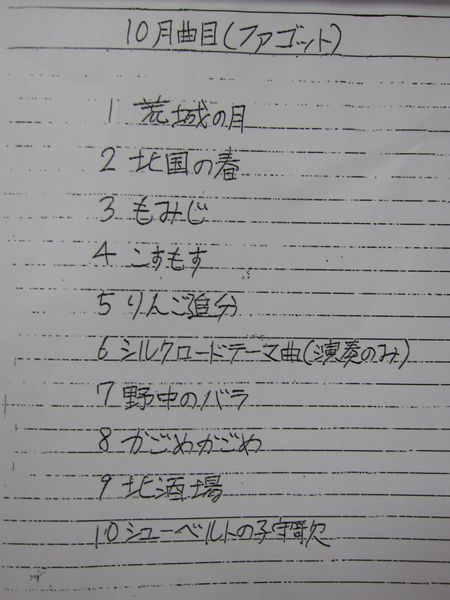 10月曲目(ファゴット)
1 荒城の月
2 北国の春
3 もみじ
4 こすもす
5 りんご追分
6 シルクロードテーマ曲(演奏のみ)
7 野中のバラ
8 かごめかごめ
9 北酒場
10 シューベルトの子守歌